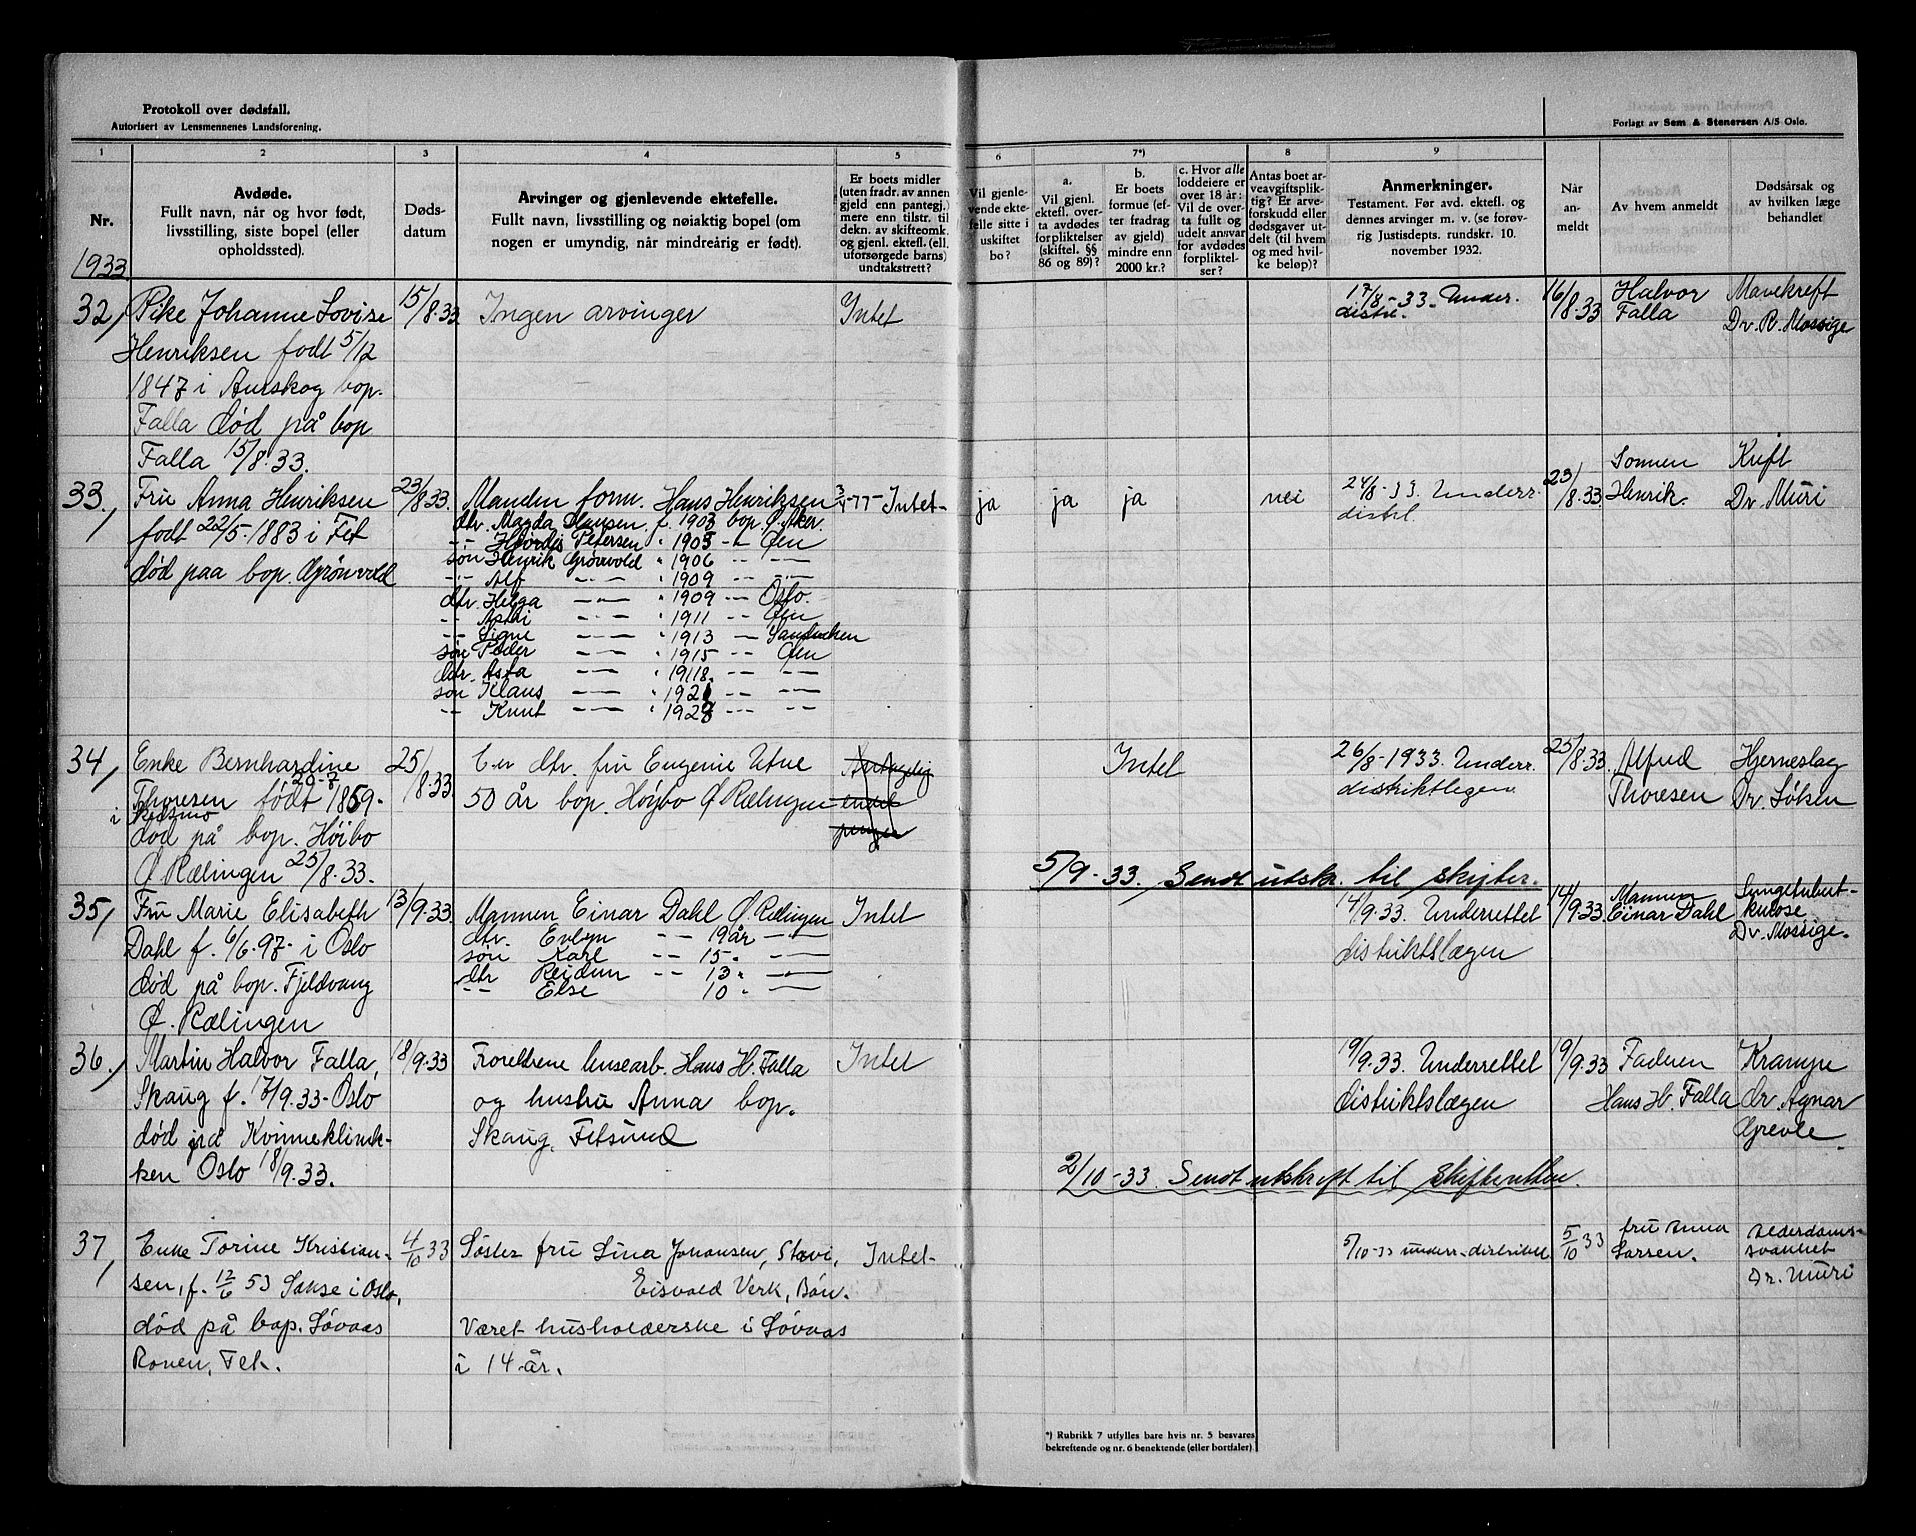 Protokoll over dødsfall.
Autorisert av Lensmennenes Landsforening.
Forlagt av Sem & Stenersen A/S Oslo.
1 2 3 4 5 6 7*) 8 9
Nr.
1933
Avdøde.
Fullt navn, når og hvor født,
livsstilling, siste bopel (eller
opholdssted).
Døds-
datum
Arvinger og gjenlevende ektefelle.
Fullt navn, livsstilling og nøiaktig bopel (om
nogen er umyndig, når mindreårig er født).
Er boets midler
(uten fradr. av annen
gjeld enn pantegj.)
mere enn tilstr. til
dekn. av skifteomk.
og gjenl. ektefl. (ell.
uforsørgede barns)
undtakstrett?
Vil gjenle-
vende ekte-
felle sitte i
uskiftet
bo?
a.
Vil gjenl.
ektefl. over-
ta avdødes
forpliktelser
(skiftel. §§
86 og 89)?
b.
Er boets
formue (ef-
ter fradrag
av gjeld)
mindre enn
2000 kr.?
c. Hvor alle
loddeiere er
over 18 år:
Vil de over-
ta fullt og
udelt ansvar
for avdødes
forplikte-
lser?
Antas boet ar-
veavgiftsplik-
tig? Er arve-
forskudd eller
dødsgaver ut-
delt (til hvem
og med hvil-
ke beløp)?
Anmerkninger.
Testament. Før avd. ektefl. og
dennes arvinger m. v. (se forøv-
rig Justisdepts. rundskr. 10.
november 1932.
Når
an-
meldt
Av hvem anmeldt
Dødsårsak og
av hvilken læge
behandlet
32,
Pike Johanne Lovise
Henriksen født 5/12
1847 i Aurskog bop.
Falla død på bop
Falla 15/8.33.
15/8.33
Ingen arvinger
Intet
17/8-33. Under.
distr.
16/8.33
Halvor
Falla
Mavekreft
Dr. R. Mossige
33.,
Fru Anna Henriksen
født 22/5-1883 i Fet
død paa bop. Grønvold
23/8.33.
Manden form. Hans Henriksen
dtr. Magda Hansen f. 1903 bop. Ø. Aker.
-"- Hjördis Petersen " 1905 -"- Øen
søn Henrik Grönvold " 1906 -"- -"-
-"- Alf -"- " 1909 -"- -"-
dtr. Helga -"- " 1909 -"- Oslo.
-"- -"- " 1911 -"- Øen
-"- Signe -"- " 1913 -"- Sandviken
søn Peder -"- " 1915 -"- Øen
dtr. Asta -"- " 1918. -"- -"-
søn Klaus -"- " 1921 -"- -"-
-"- Knut -"- " 1928 -"- -"-
Intet-
ja
ja
ja
nei
24/8-33. Underr.
distl.
23/8.33
Sønnen
Henrik.
Kreft
Dr. Muri
34,
Enke Bernhardine
Thoresen født 20-7 1859-
i Skedsmo
død på bop. Høibo
Ø Rælingen 25/8.33.
25/8.33
En dtr. fru Eugenie Utne
50 år bop. Höybo Ø Rælingen
Intet
26/8-1933. Underr.
distriktlegen
25/8.33
Alfred
Thoresen
Hjerneslag
Dr. Löken
5/9-33. Sendt utskr. til skifter.
35,
Fru Marie Elisabeth
Dahl f. 6/6-97- i Oslo
død på bop. Fjeldvang
Ø. Rælingen
13/9.33.
Mannen Einar Dahl Ø. Rælingen
dtr. Evelyn -"- 19 år -"-
søn Karl -"- 15 " -"-
dtr Reidun -"- 13 " -"-
-"- Else 10 " -"-
Intet
14/9.33. Underrettet
distriktslægen
14/9.33
Mannen
Einar Dahl
Lungetuberk-
kulose
Dr. Mossige.
36,
Martin Halvor Falla,
Skaug f. 17/9.33-Oslo
død på Kvinneklinik-
ken Oslo 18/9.33.
18/9.33
Foreldrene Hans H. Falla
og hustru Anna bop.
Skaug. Fetsund
Intet
19/9.33. Underrettet
distriktslægen
19/9.33
Faderen
Hans H. Falla
Krampe
dr. Agnar
Grevle
2/10-33. Sendt utskrift til skifteretten.
37,
Enke Torine Kristian-
sen, f. 12/6 53 i Oslo,
død på bop. Løvaas
Roven, Fet.
4/10 33
Søster fru Lina Johansen, Stavi,
Eisvold Verk, Bøn.
Været husholderske i Løvaas
i 14 år.
Intet-
5/10-33 underr. distriktl
5/10 33
fru Anna
Larsen.
Alderdoms-
svakhet
Dr. Muri
*) Rubrikk 7 utfylles bare hvis nr. 5 besvares
bekreftende og nr. 6 benektende (eller bortfaler)